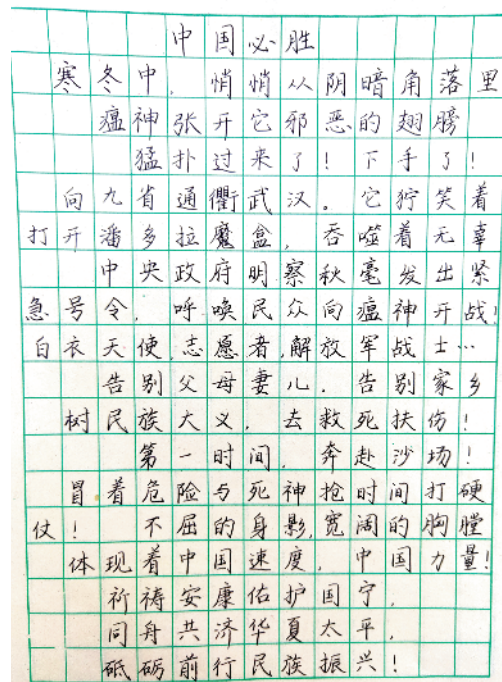 中国必胜
寒冬中，悄悄从阴暗角落里
瘟神张开它邪恶的翅膀
猛扑过来了！下手了！
向九省通衢武汉。它狞笑着
打开潘多拉魔盒，吞噬着无辜
中央政府明察秋毫发出紧
急号令，呼唤民众向瘟神开战！
白衣天使，志愿者，解放军战士…
告别父母妻儿，告别家乡
树民族大义，去救死扶伤！
第一时间，奔赴沙场！
冒着危险与死神抢时间打硬
仗！不屈的身影，宽阔的胸膛
体现着中国速度，中国力量！
祈祷安康佑护国宁，
同舟共济华夏太平，
砥砺前行民族振兴！